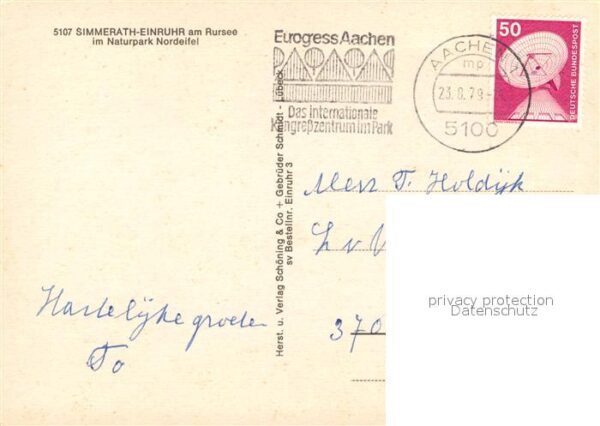 5107 SIMMERATH-EINRUHR am Rursee
im Naturpark Nordeifel
Eurogress Aachen
Das internationale
Kongreßzentrum im Park
AACHEN
mp
23.8.79
5100
50
DEUTSCHE BUNDESPOST
Herst. u. Verlag Schöning & Co + Gebrüder Schmidt - Lübeck
sv Bestellnr. Einruhr 3
Mevr T. Holdijk
L v
370
Hartelijke groeten
To
privacy protection
Datenschutz